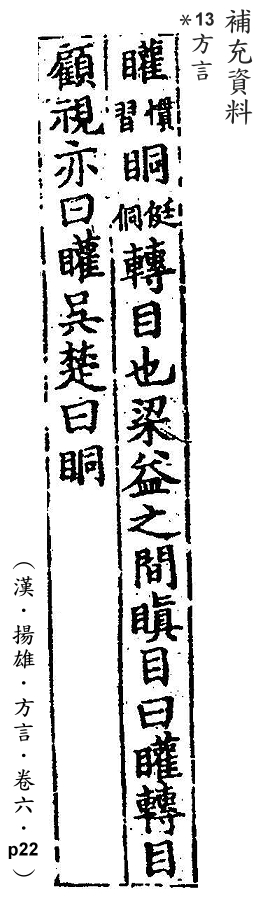 補充資料
*13方言
矔慣習眮侹侗轉目也梁益之間瞋目曰矔轉目
顧視亦曰矔吳楚曰眮
（漢・揚雄・方言・卷六・p22）